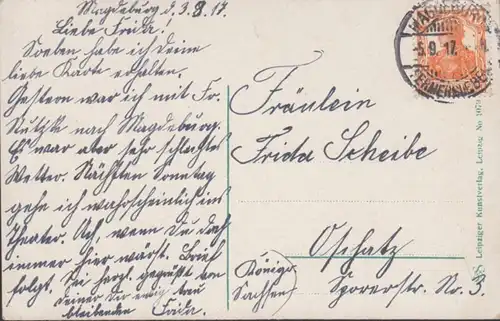 Magdeburg d. 3.9.17.
Liebe Frida!
Soeben habe ich Deine
liebe Karte erhalten.
Gestern war ich mit Fr.
nach Magdeburg.
Es war aber sehr schlechtes
Wetter. Nächsten Sonntag
gehe ich wahrscheinlich ins
Theater. Ach, wenn Du doch
immer hier wärst. Brief
folgt. Sei herzl. gegrüßt von
Deiner Dir ewig treu
bleibenden Frida.
MAGDEBURG
5.9.17.
Fräulein
Frida Scheibe
Oschatz
Königr.
Sachsen
Sporerstr. No. 3.
Leipziger Kunstverlag, Leipzig No